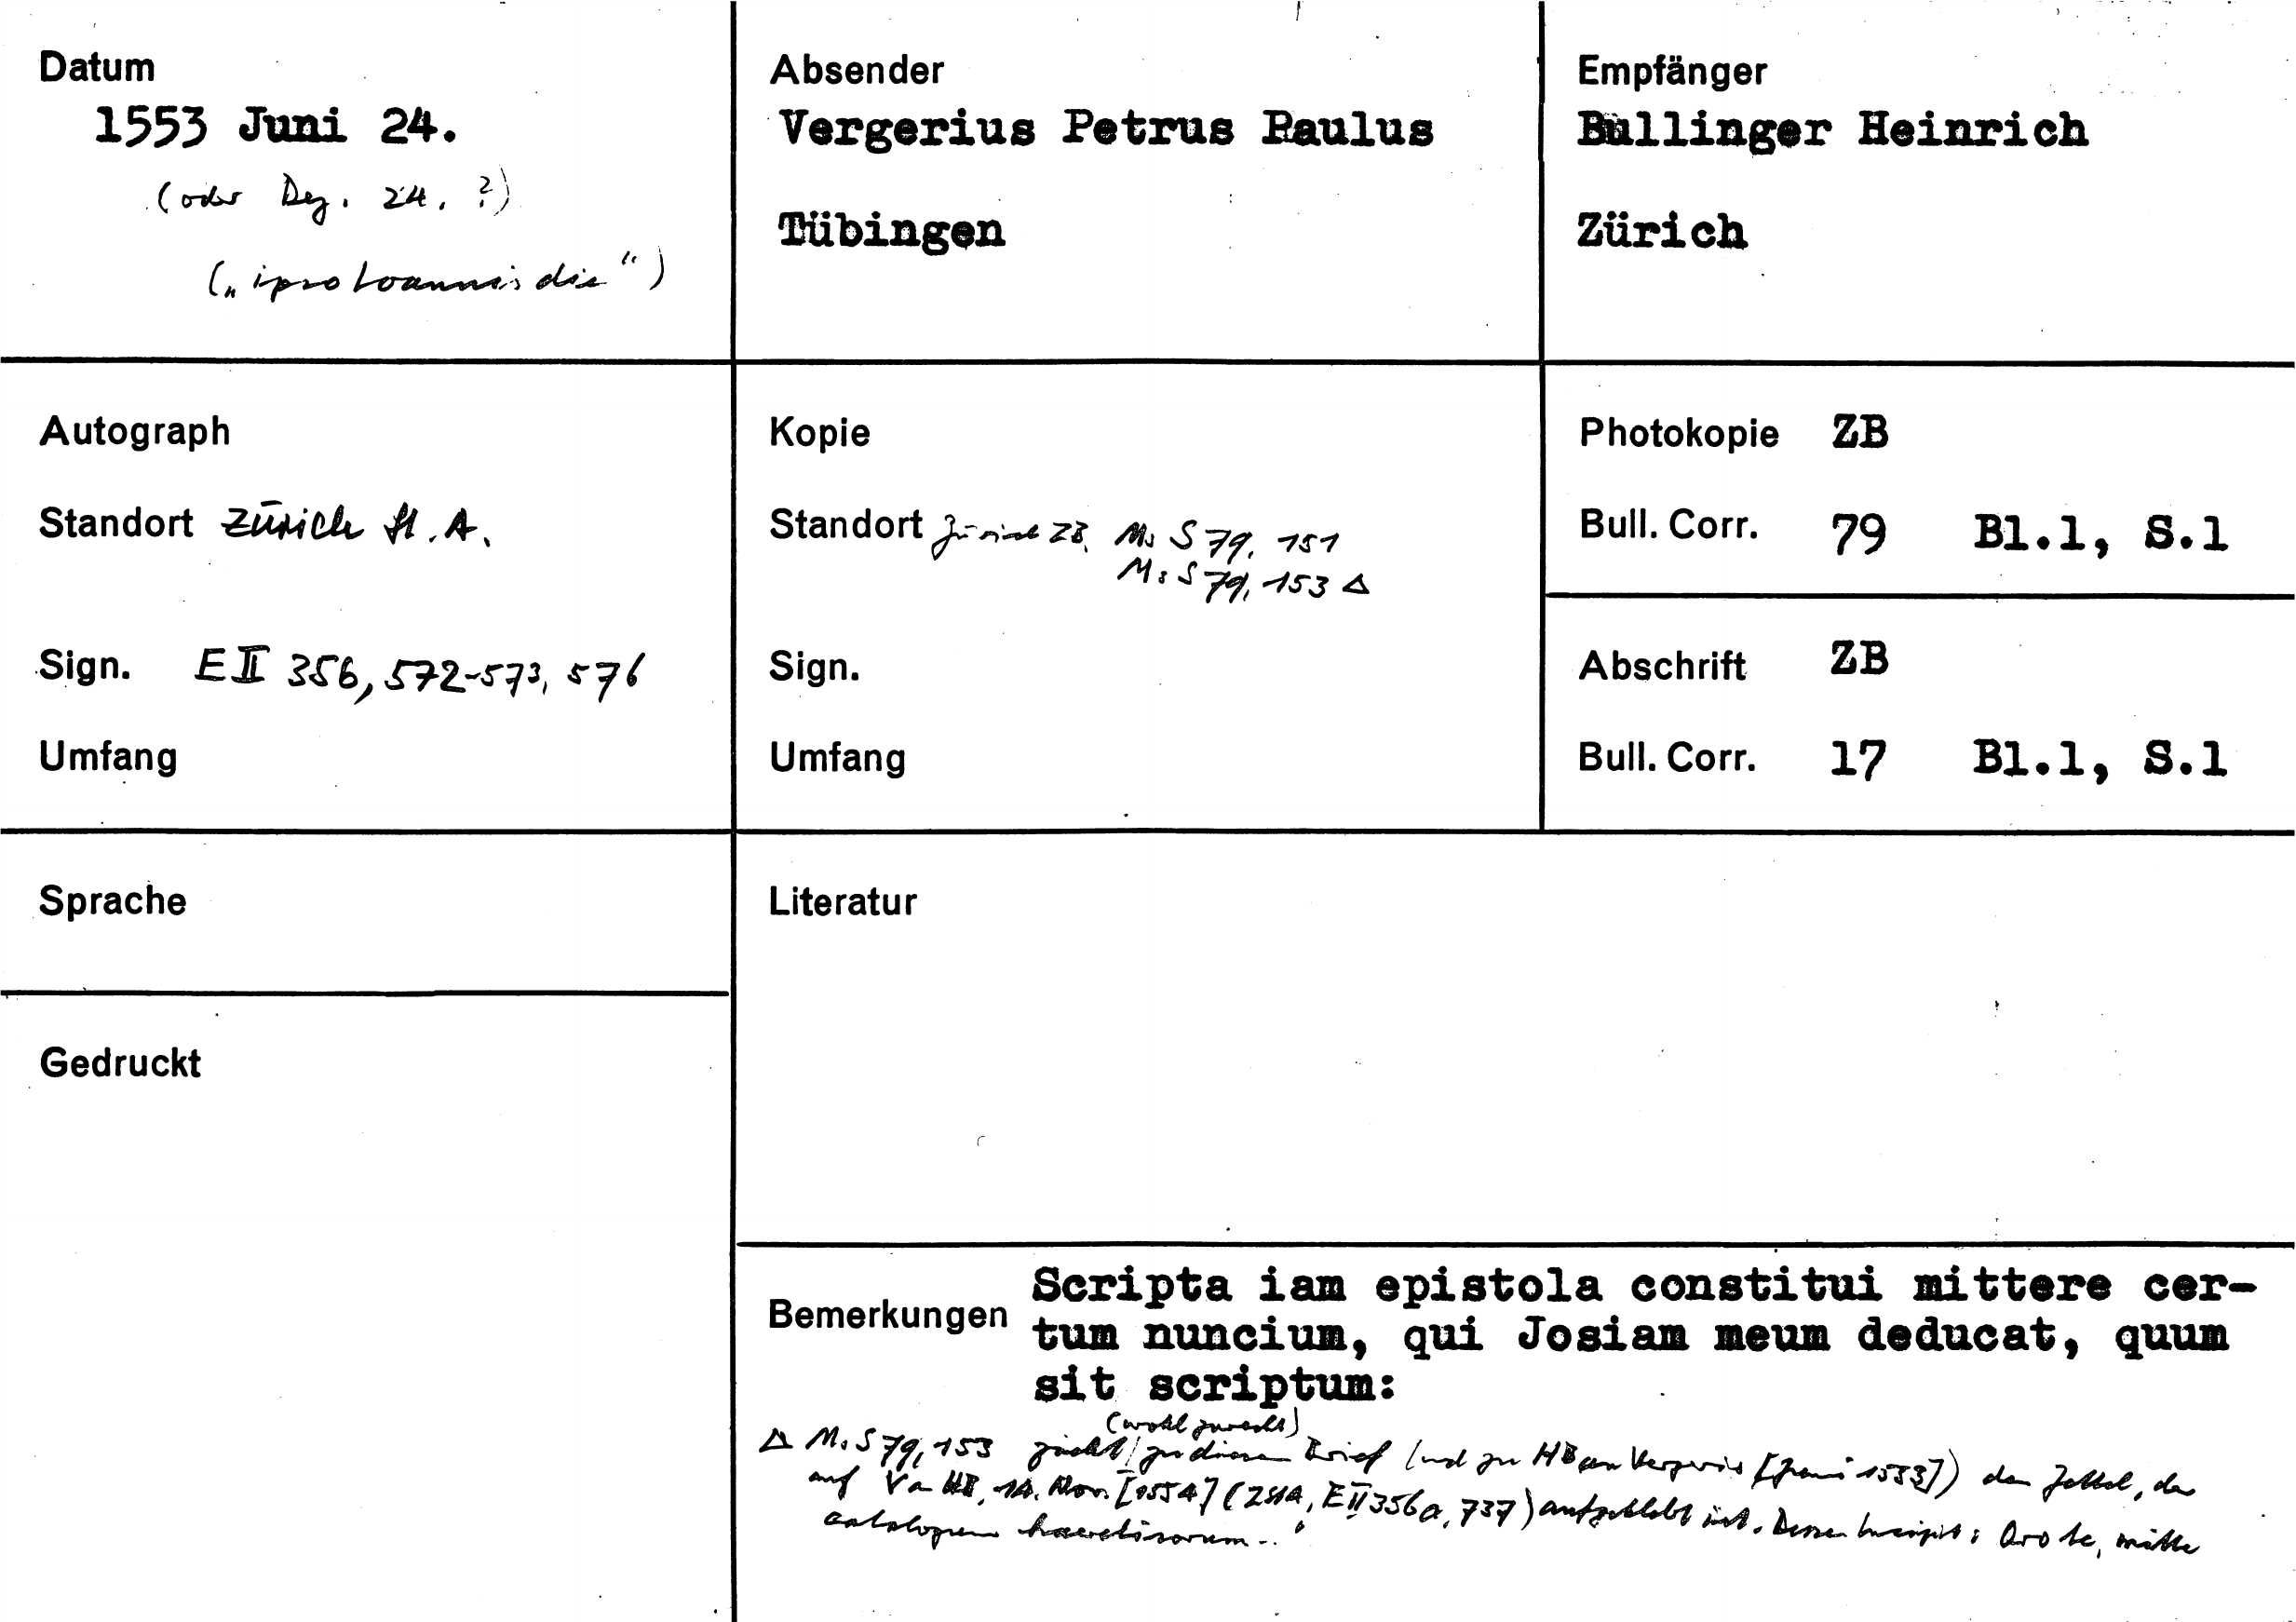 Datum
1553 Juni 24.
(oder Dez. 24. ?)
(„ipso Ioannis die“)
Absender
Vergerius Petrus Paulus
Tübingen
Empfänger
Bullinger Heinrich
Zürich
Autograph
Standort Zürich St.A.
Sign. E II 356, 572-573, 576
Umfang
Kopie
Standort Zürich ZB, Ms S 79, 151
Ms S 79, 153 Δ
Sign.
Umfang
Photokopie ZB
Bull. Corr. 79 Bl.1, S.1
Abschrift ZB
Bull. Corr. 17 Bl.1, S.1
Sprache
Gedruckt
Literatur
Bemerkungen
Scripta iam epistola constitui mittere cer-
tum nuncium, qui Josiam meum deducat, quum
sit scriptum:
(wohl zurecht)
Δ Ms S 79, 153 zieht zu diesem Brief (und zu HB an Vergerio [Juni 1553]) den Zettel, der
auf V an HB, 14. Nov. [1554] (ZStA, E II 356a, 737) aufgeklebt ist. Dessen Incipit: Oro te, mitte
catalogum haereticorum..“